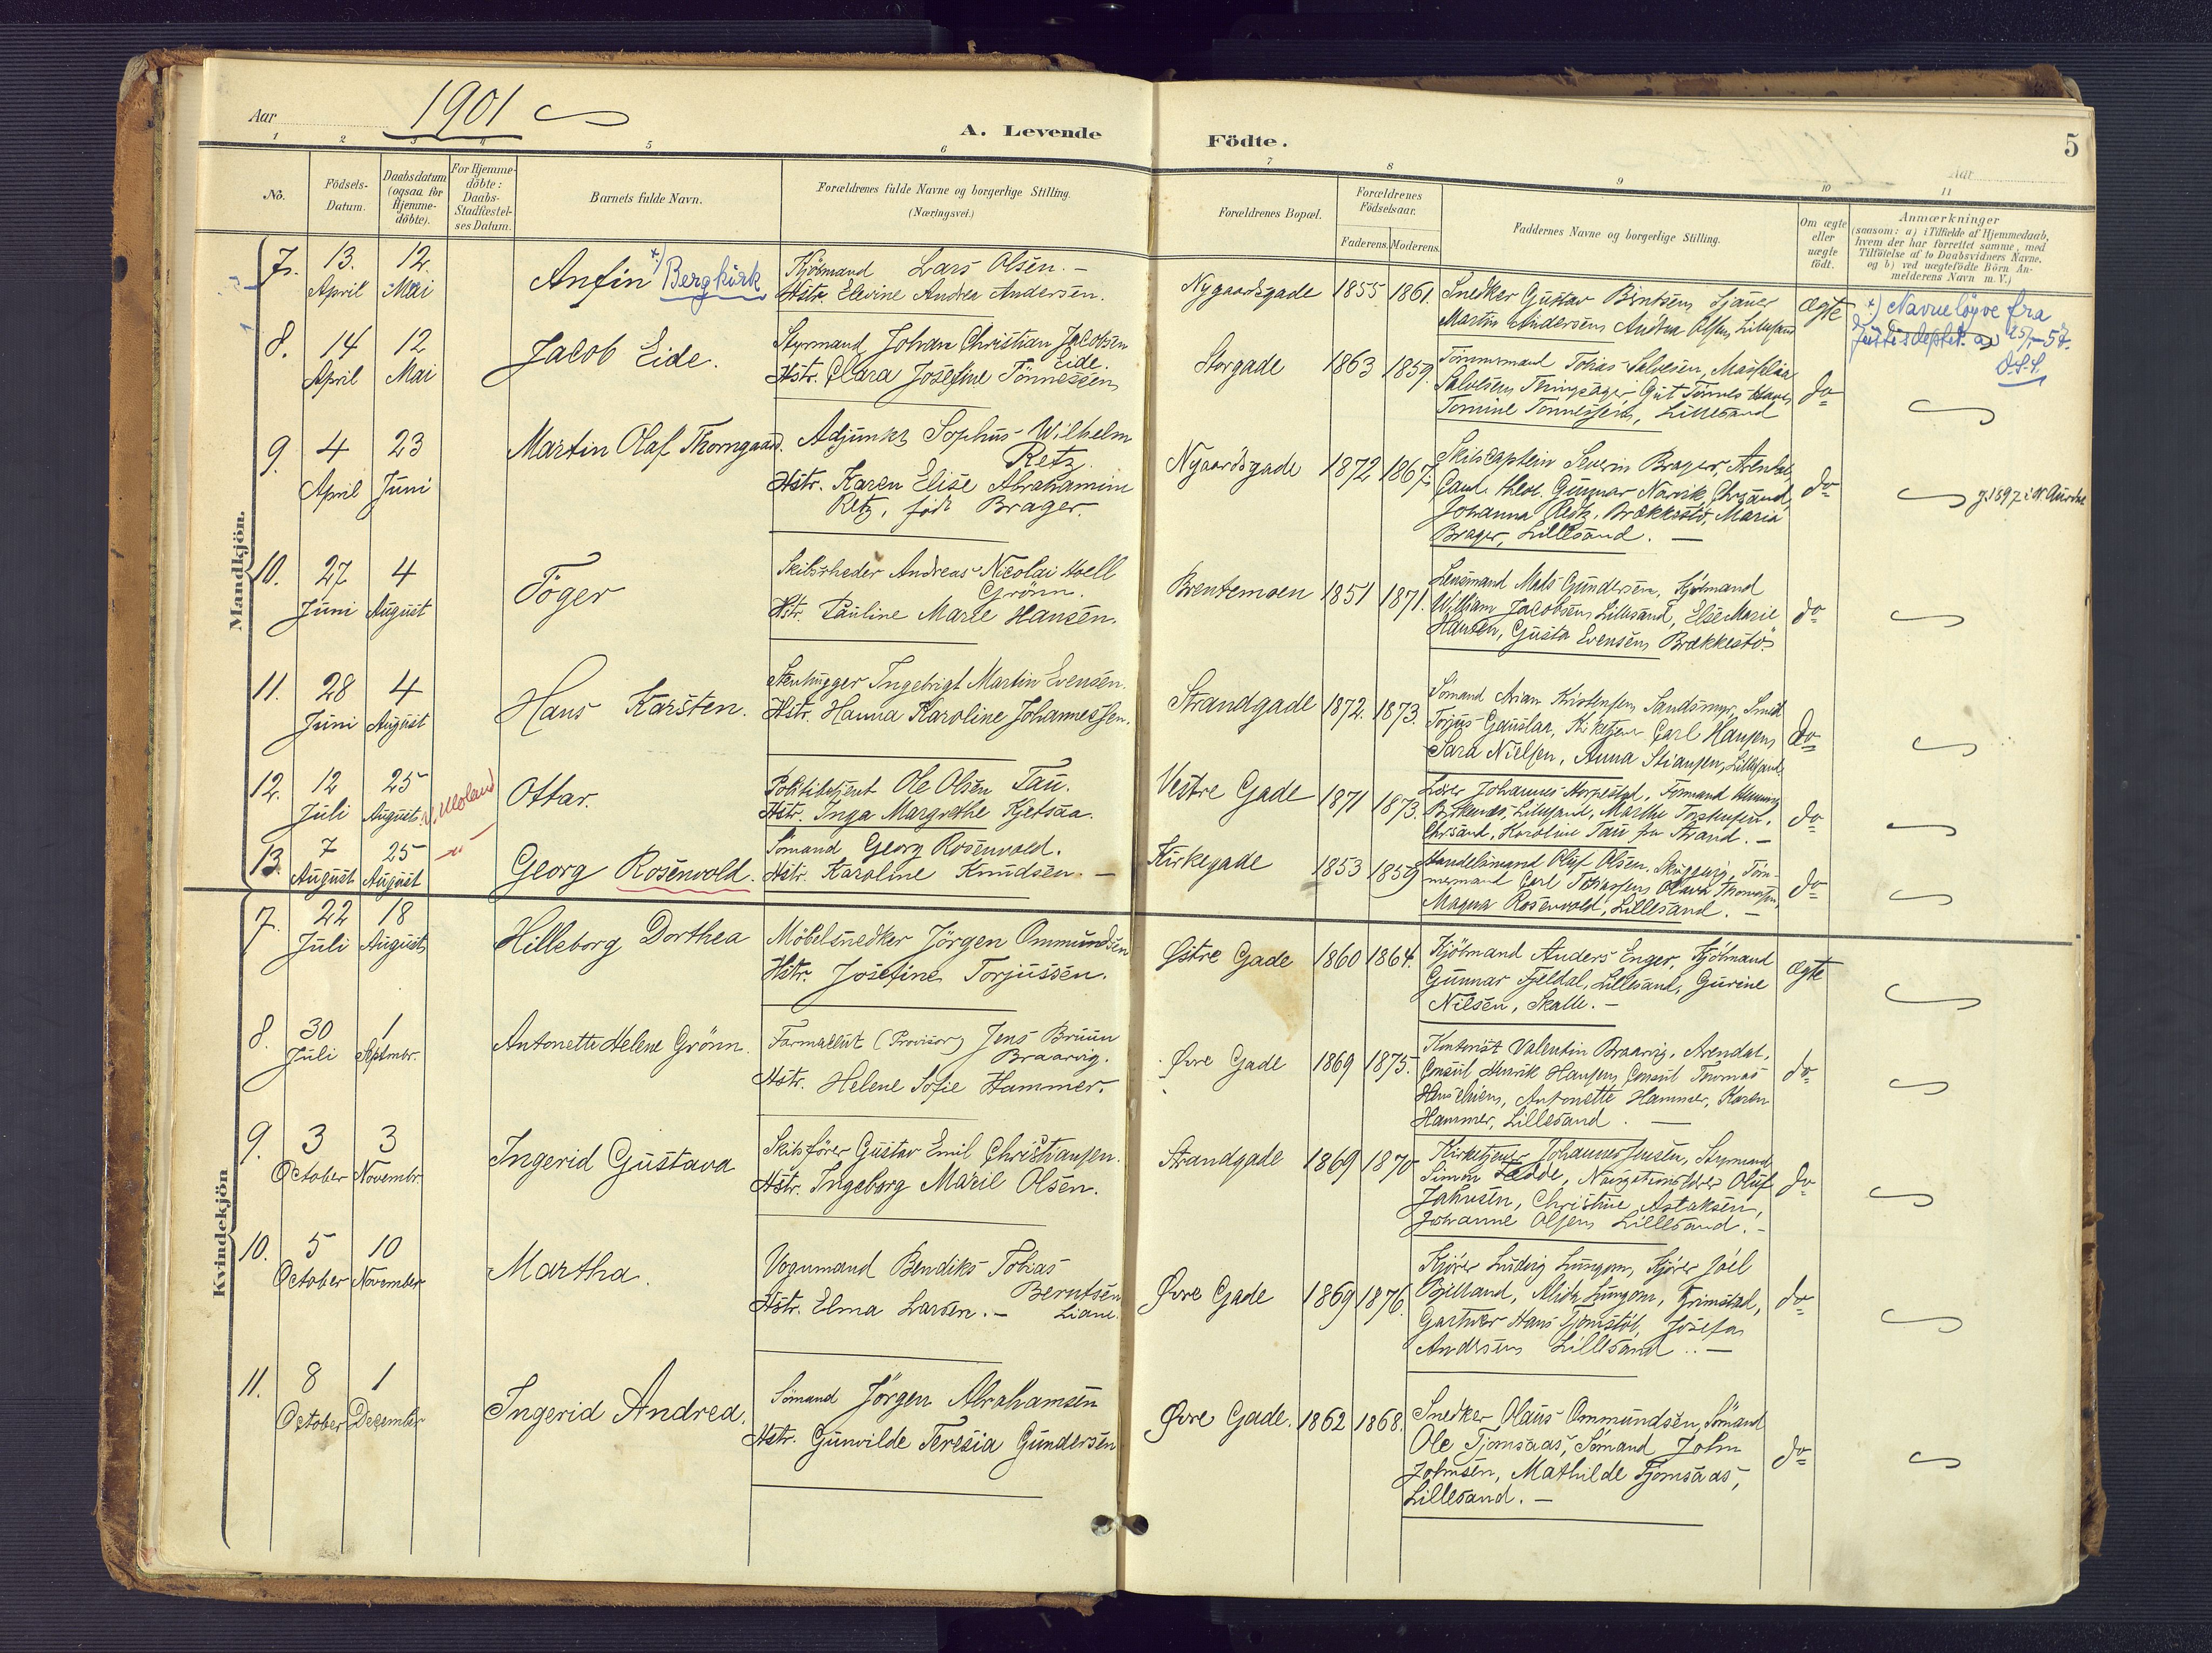 Aar 1901
A. Levende Födte.
5
Aar
1 2 3 4 5 6 7 8 9 10 11
No.
Födsels-Datum.
Daabsdatum (ogsaa for Hjemmedöbte).
For Hjemmedöbte: Daabs-Stadfæstelses Datum.
Barnets fulde Navn.
Forældrenes fulde Navne og borgerlige Stilling.
(Næringsvei.)
Forældrenes Bopæl.
Forældrenes Födselsaar.
Faderens. Moderens.
Faddernes Navne og borgerlige Stilling.
Om ægte eller uægte födt.
Anmærkninger
(saasom: a) i Tilfælde af Hjemmedaab,
hvem der har forrettet samme, med
Tilföielse af to Daabsvidners Navne,
og b) ved uægtefödte Börn Anmelderens Navn m. V.)
Mandkjön.
7. 13. April 12. Mai
Anfin x) Bergkirk
Kjöbmand Lars Olsen. -
Hstr. Elevine Andrea Andersen.
Nygaardsgade 1855 1861.
Snedker Gustav Berntsen,
Martin Andersen, Andrea Olsen, Lillesand
Ægte
x) Navneløyve fra
Justisdeptet. av 25/ -57.
8. 14 April 12 Mai
Jacob Eide.
Styrmand Johan Christian Jacobsen
Eide.
Hstr. Clara Josefine Tönnessen
Storgade 1863 1859.
Tömmermand Tobias Salvesen,
Salvesen,
Tomine Tönnessen, Lillesand
do
9. 4 April 23 Juni
Martin Olaf Thorngaard.
Adjunkt Sophus Wilhelm
Retz.
Hstr. Karen Elise Abrahamine
Retz, född Brager.
Nygaardsgade 1872 1867.
Skibscaptein Severin Brager, Arendal,
Cand. theol. Gunnar Narvik, Chrsand,
Johanna Brækkestö, Maria
Brager, Lillesand. -
do
g. 1897 i
10. 27 Juni 4 August
Töger
Skibsrheder Andreas Nicolai Hoell
Grönn.
Hstr. Pauline Marie Hansen.
Brentemoen 1851 1871.
Lensmand Mats Gundersen, Kjöbmand
William Jacobsen, Lillesand, Else Marie
Hansen, Gusta Evensen, Brækkestö.
do
11. 28 Juni 4 August
Hans Karsten.
Stenhugger Ingebrigt Martin Evensen.
Hstr. Hanna Karoline Johannessen.
Strandgade 1872. 1873.
Sömand Kristensen, Sandsmyr, Smed
Torjus Gauslaa, Kirketjener Carl Hansen,
Sara Nielsen, Anna Stiansen, Lillesand
do
12. 12 Juli 25 August
V. Moland
Ottar.
Politibetjent Ole Olsen Tau.
Hstr. Inga Margrethe Kjetsaa.
Vestre Gade 1871 1873.
Lærer Johannes
Birkenæs, Lillesand, Marthe Torstensen,
Chrsand, Karoline Tau fra Strand. -
do
13. 7 August 25 August
Georg Rosenvold.
Sömand Georg Rosenvold.
Hstr. Karoline Knudsen. -
Kirkegade 1853 1859
Handelsmand Oluf Olsen, Töm-
mermand Carl Tobiassen, Olava Thomsen,
Magna Rosenvold, Lillesand. -
do
Kvindekjön
7. 22 Juli 18 August
Hilleborg Dorthea
Möbelsnedker Jörgen Ommundsen
Hstr. Josefine Torjussen.
Østre Gade 1860 1864.
Kjöbmand Anders Enger, Kjöbmand
Gunnar Fjeldal, Lillesand, Gurine
Nilsen, Skalle. -
Ægte
8. 30 Juli 1 Septmbr.
Antonette Helene Grönn.
Farmaceut (Provisor) Jens Bruun
Braarvig.
Hstr. Helene Sofie Hammer.
Øvre Gade 1869 1875.
Kontorist Valentin Braarvig, Arendal,
Consul Henrik Hansen, Consul Thomas
Antonette Hammer, Karen
Hammer, Lillesand. -
do
9. 3 October 3 Novembr.
Ingerid Gustava
Skibsförer Gustav Emil Christiansen.
Hstr. Ingeborg Marie Olsen.
Strandgade 1869 1870
Kirketjener Johannes Jensen, Styrmand
Simon Fedde, Navigationslærer Oluf
Johnsen, Christine Aslaksen,
Johanne Olsen, Lillesand. -
do
10. 5 October 10 November
Martha.
Vognmand Bendiks Tobias
Berntsen
Hstr. Elma Larsen. - Liane.
Øvre Gade 1869 1876.
Kjörer Ludvig Kjörer Joel
Grimstad,
Gartner Hans Josefa
Andersen Lillesand. -
do
11. 8 October 1 December
Ingerid Andrea.
Sömand Jörgen Abrahamsen
Hstr. Gunvilde Teresia Gundersen
Øvre Gade. 1862 1868.
Snedker Olaus Ommundsen, Sömand
Ole Tjomsaas, Sömand John
Johnsen, Mathilde Tjomsaas,
Lillesand. -
do